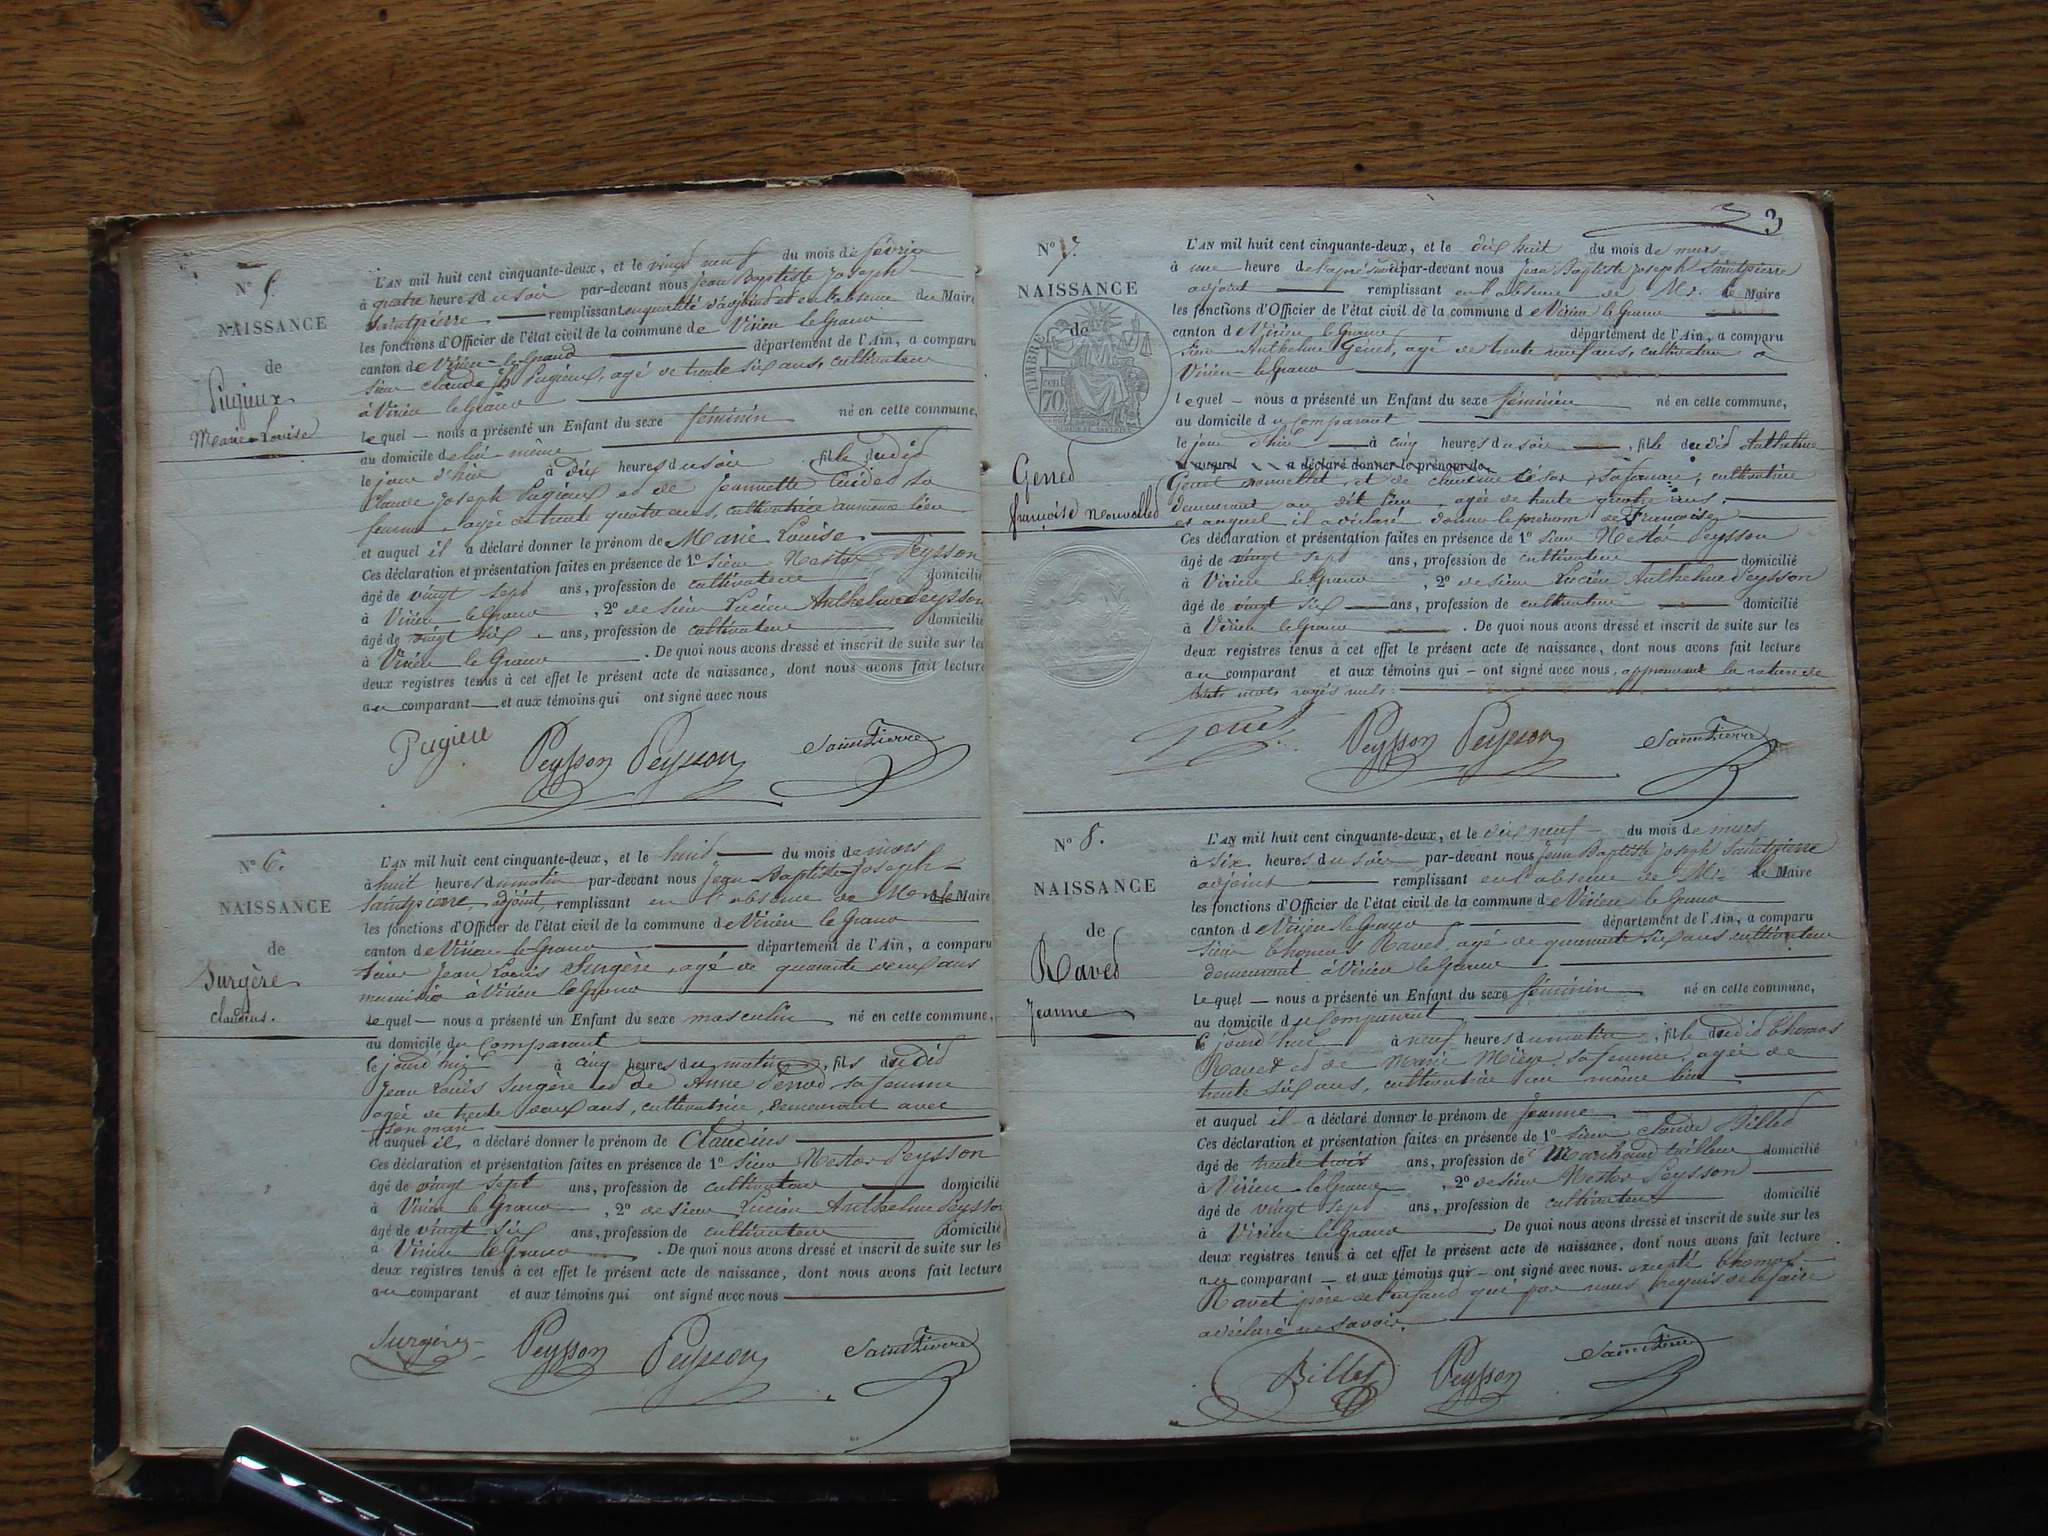 N° 5.
NAISSANCE
de
Pugieux
Marie Louise
L'AN mil huit cent cinquante-deux, et le vingt neuf du mois de février
à quatre heures du soir par-devant nous Jean Baptiste Joseph
Saintpierre remplissant en qualité d'adjoint et en l'absence du Maire
les fonctions d'Officier de l'état civil de la commune de Virieu le Grand
canton de Virieu-le-Grand département de l'Ain, a comparu
sieur Claude Jh Pugieux, agé de trente six ans, cultivateur
à Virieu le Grand
lequel — nous a présenté un Enfant du sexe féminin né en cette commune,
au domicile de lui même
le jour d'hier à dix heures du soir fille dudit
Claude Joseph Pugieux et de Jeannette Guidet sa
femme, agée de trente quatre ans, cultivatrice au même lieu
et auquel il a déclaré donner le prénom de Marie Louise
Ces déclaration et présentation faites en présence de 1° sieur Nestor Peysson
âgé de vingt sept ans, profession de cultivateur domicilié
à Virieu le Grand, 2° de sieur Lucien Anthelme Peysson
âgé de vingt six ans, profession de cultivateur domicilié
à Virieu le Grand. De quoi nous avons dressé et inscrit de suite sur les
deux registres tenus à cet effet le présent acte de naissance, dont nous avons fait lecture
au comparant — et aux témoins qui ont signé avec nous
Pugieu Peysson Peysson SaintPierre
N° 6.
NAISSANCE
de
Surgère
Claudius.
L'AN mil huit cent cinquante-deux, et le huit du mois de mars
à huit heures du matin par-devant nous Jean-Baptiste-Joseph
Saintpierre, adjoint remplissant en l'absence de Mr le Maire
les fonctions d'Officier de l'état civil de la commune de Virieu le Grand
canton de Virieu le Grand département de l'Ain, a comparu
sieur Jean Louis Surgère, agé de quarante deux ans
à Virieu le Grand
lequel — nous a présenté un Enfant du sexe masculin né en cette commune,
au domicile du Comparant
le jourd'hui à cinq heures du matin, fils dudit
Jean Louis Surgère et de Anne sa femme
agée de trente deux ans, cultivatrice, demeurant avec
son mari
et auquel il a déclaré donner le prénom de Claudius
Ces déclaration et présentation faites en présence de 1° sieur Nestor Peysson
âgé de vingt sept ans, profession de cultivateur domicilié
à Virieu le Grand, 2° de sieur Lucien Anthelme Peysson
âgé de vingt six ans, profession de cultivateur domicilié
à Virieu le Grand. De quoi nous avons dressé et inscrit de suite sur les
deux registres tenus à cet effet le présent acte de naissance, dont nous avons fait lecture
au comparant et aux témoins qui ont signé avec nous
Surgère Peysson Peysson SaintPierre
3
N° 7.
NAISSANCE
de
TIMBRE
70
Genet
françoise
L'AN mil huit cent cinquante-deux, et le dix huit du mois de mars
à une heure de l'après midi par-devant nous Jean Baptiste Joseph Saintpierre
adjoint remplissant en l'absence de Mr. le Maire
les fonctions d'Officier de l'état civil de la commune de Virieu le Grand
canton de Virieu le Grand département de l'Ain, a comparu
sieur Anthelme Genet, agé de trente neuf ans, cultivateur à
Virieu-le Grand
lequel — nous a présenté un Enfant du sexe féminin né en cette commune,
au domicile du Comparant
le jour d'hier à cinq heures du soir, fille dudit Anthelme
et auquel a déclaré donner le prénom de
Genet et de Claudine sa femme, cultivatrice
demeurant au dit lieu, agée de trente quatre ans.
et auquel il a déclaré donner le prénom de Françoise
Ces déclaration et présentation faites en présence de 1° sieur Nestor Peysson
âgé de vingt sept ans, profession de cultivateur domicilié
à Virieu le Grand, 2° de sieur Lucien Anthelme Peysson
âgé de vingt six ans, profession de cultivateur domicilié
à Virieu le Grand. De quoi nous avons dressé et inscrit de suite sur les
deux registres tenus à cet effet le présent acte de naissance, dont nous avons fait lecture
au comparant et aux témoins qui — ont signé avec nous, approuvant la rature de
huit mots rayés nuls.
Genet Peysson Peysson SaintPierre
N° 8.
NAISSANCE
de
Ravet
Jeanne
L'AN mil huit cent cinquante-deux, et le dix neuf du mois de mars
à six heures du soir par-devant nous Jean Baptiste Joseph Saintpierre
adjoint remplissant en l'absence de Mr le Maire
les fonctions d'Officier de l'état civil de la commune de Virieu le Grand
canton de Virieu le Grand département de l'Ain, a comparu
sieur Thomas Ravet, agé de quarante six ans cultivateur
demeurant à Virieu le Grand
lequel — nous a présenté un Enfant du sexe féminin né en cette commune,
au domicile du Comparant
le jourd'hui à neuf heures du matin, fille dudit Thomas
Ravet et de Marie Miège sa femme, agée de
trente six ans, cultivatrice au même lieu
et auquel il a déclaré donner le prénom de Jeanne
Ces déclaration et présentation faites en présence de 1° sieur Claude Billet
âgé de trente trois ans, profession de Marchand tailleur domicilié
à Virieu le Grand, 2° de sieur Nestor Peysson
âgé de vingt sept ans, profession de cultivateur domicilié
à Virieu le Grand. De quoi nous avons dressé et inscrit de suite sur les
deux registres tenus à cet effet le présent acte de naissance, dont nous avons fait lecture
au comparant — et aux témoins qui — ont signé avec nous. excepté Thomas
Ravet père de l'enfant qui par nous requis de le faire
a déclaré ne savoir.
Billet Peysson SaintPierre